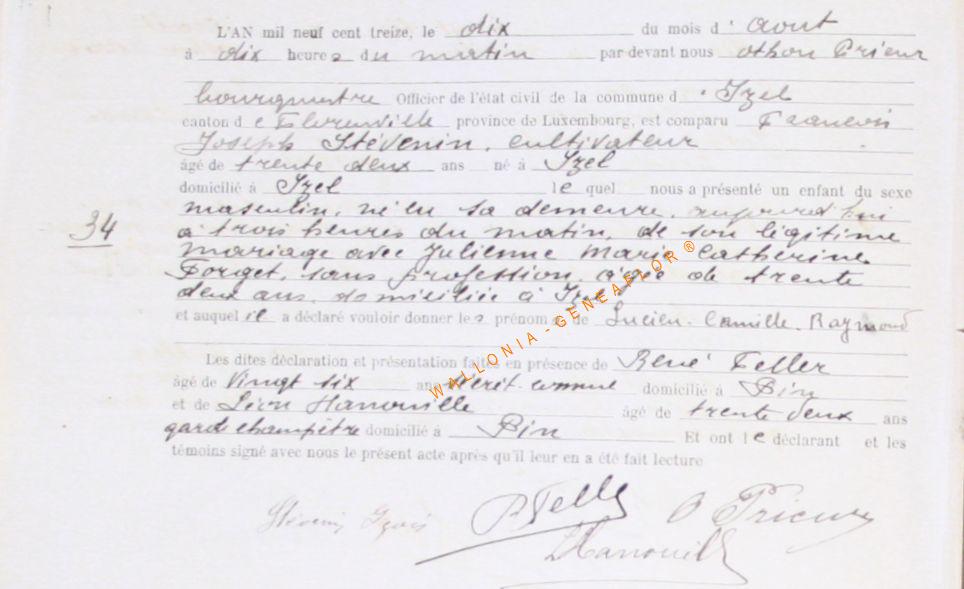 L'AN mil neuf cent treize, le dix du mois d'aout
à dix heures du matin par-devant nous Othon Prieur
bourgmestre Officier de l'état civil de la commune d'Izel
canton de Florenville province de Luxembourg, est comparu François
Joseph Stévenin, cultivateur
âgé de trente deux ans né à Izel
domicilié à Izel lequel nous a présenté un enfant du sexe
masculin, né en sa demeure, aujourd'hui
34
à trois heures du matin, de son légitime
mariage avec Julienne Marie Catherine
Forget, sans profession, agée de trente
deux ans, domiciliée à Izel
et auquel il a déclaré vouloir donner les prénoms de Lucien-Camille-Raymond
WALLONIA - GENEAFLOR ®
Les dites déclaration et présentation faites en présence de René Feller
âgé de vingt six ans domicilié à Pin
et de Léon Hanouille âgé de trente deux ans
garde champêtre domicilié à Pin Et ont le déclarant et les
témoins signé avec nous le présent acte après qu'il leur en a été fait lecture
Stévenin
R Feller
O Prieur
L Hanouille